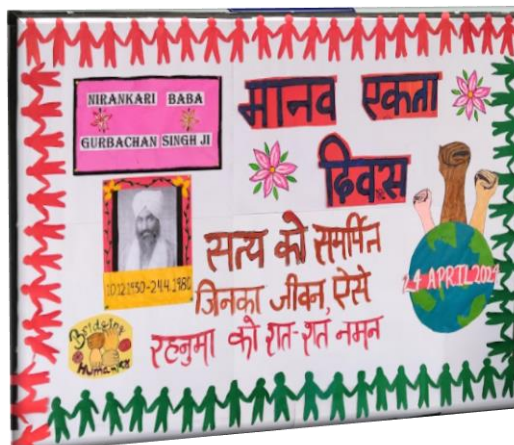 NIRANKARI BABA
GURBACHAN SINGH JI
मानव एकता
दिवस
10.12.1930-24.4.1980
सत्य को समर्पित
जिनका जीवन, ऐसे
रहनुमा को शत-शत नमन
24 APRIL
Bridging
Humanity